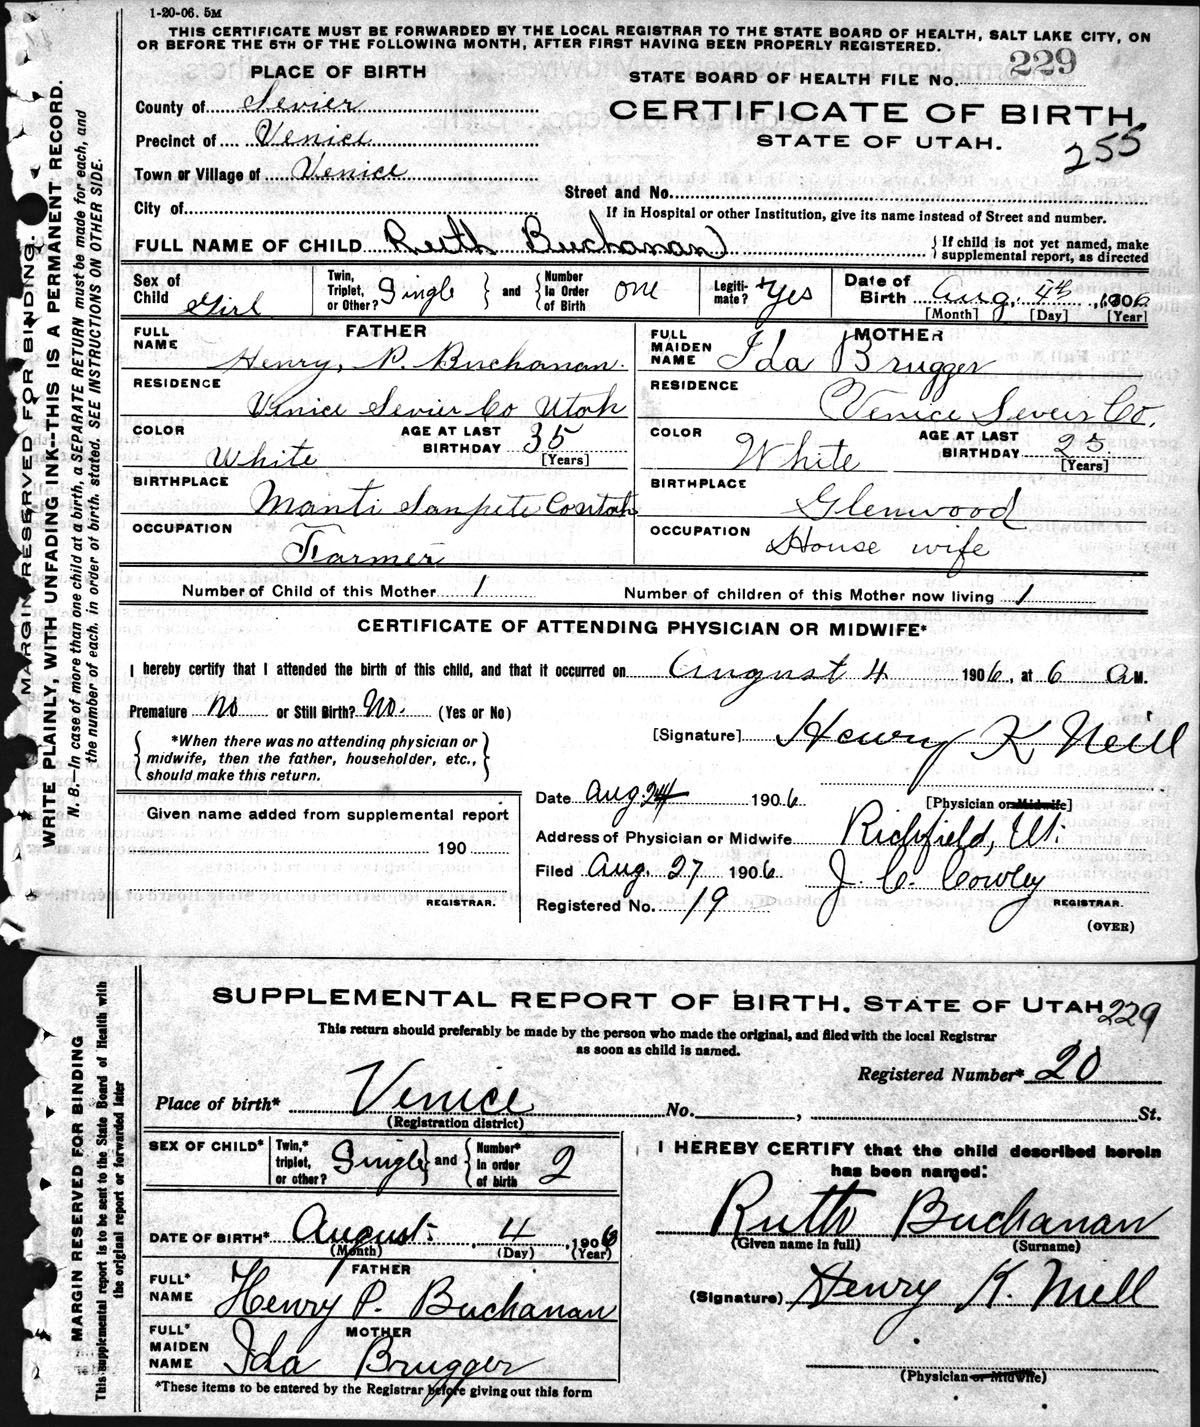 1-20-06. 5M
THIS CERTIFICATE MUST BE FORWARDED BY THE LOCAL REGISTRAR TO THE STATE BOARD OF HEALTH, SALT LAKE CITY, ON
OR BEFORE THE 5TH OF THE FOLLOWING MONTH, AFTER FIRST HAVING BEEN PROPERLY REGISTERED.
MARGIN RESERVED FOR BINDING.
WRITE PLAINLY, WITH UNFADING INK--THIS IS A PERMANENT RECORD.
N. B.—In case of more than one child at a birth, a SEPARATE RETURN must be made for each, and
the number of each, in order of birth, stated. SEE INSTRUCTIONS ON OTHER SIDE.
PLACE OF BIRTH
STATE BOARD OF HEALTH FILE No. 229
County of Sevier
CERTIFICATE OF BIRTH.
Precinct of Venice
STATE OF UTAH.
255
Town or Village of Venice
Street and No.
City of
If in Hospital or other Institution, give its name instead of Street and number.
FULL NAME OF CHILD Ruth Buchanan
{ If child is not yet named, make
supplemental report, as directed
Sex of Child Girl
Twin, Triplet, or Other? Single } and { Number In Order of Birth one
Legiti-mate? Yes
Date of Birth Aug. 4th, 1906
[Month] [Day] [Year]
FATHER
MOTHER
FULL NAME Henry, P. Buchanan.
FULL MAIDEN NAME Ida Brugger
RESIDENCE Venice Sevier Co Utah
RESIDENCE Venice Seveir Co.
COLOR White AGE AT LAST BIRTHDAY 35 [Years]
COLOR White AGE AT LAST BIRTHDAY 25 [Years]
BIRTHPLACE Manti Sanpete Co Utah
BIRTHPLACE Glenwood
OCCUPATION Farmer
OCCUPATION House wife
Number of Child of this Mother 1 Number of children of this Mother now living 1
CERTIFICATE OF ATTENDING PHYSICIAN OR MIDWIFE*
I hereby certify that I attended the birth of this child, and that it occurred on August 4 1906, at 6 a M.
Premature no or Still Birth? No. (Yes or No)
[Signature] Henry K Neill
{ *When there was no attending physician or
midwife, then the father, householder, etc.,
should make this return. }
Date Aug. 24 1906
[Physician or Midwife]
Given name added from supplemental report
Address of Physician or Midwife Richfield, Ut.
190
Filed Aug. 27 1906 J. C. Cowley
REGISTRAR.
Registered No. 19
REGISTRAR.
(OVER)
MARGIN RESERVED FOR BINDING
This supplemental report is to be sent to the State Board of Health with
the original report or forwarded later
SUPPLEMENTAL REPORT OF BIRTH. STATE OF UTAH 229
This return should preferably be made by the person who made the original, and filed with the local Registrar
as soon as child is named.
Registered Number* 20
Place of birth* Venice No. , St.
(Registration district)
SEX OF CHILD* Twin,* triplet, or other? Single } and { Number* in order of birth 2
I HEREBY CERTIFY that the child described herein
has been named:
Ruth Buchanan
(Given name in full) (Surname)
DATE OF BIRTH* August 4, 1906
(Month) (Day) (Year)
FATHER
FULL* NAME Henry P. Buchanan
(Signature) Henry K. Neill
MOTHER
FULL* MAIDEN NAME Ida Brugger
(Physician or Midwife)
*These items to be entered by the Registrar before giving out this form